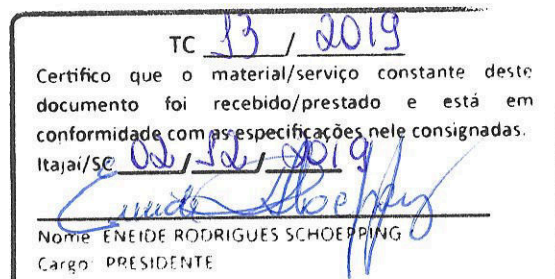 TC 13 / 2019
Certifico que o material/serviço constante deste
documento foi recebido/prestado e está em
conformidade com as especificações nele consignadas.
Itajaí/SC 02 / 12 / 2019
Eneide Schoepping
Nome ENEIDE RODRIGUES SCHOEPPING
Cargo: PRESIDENTE